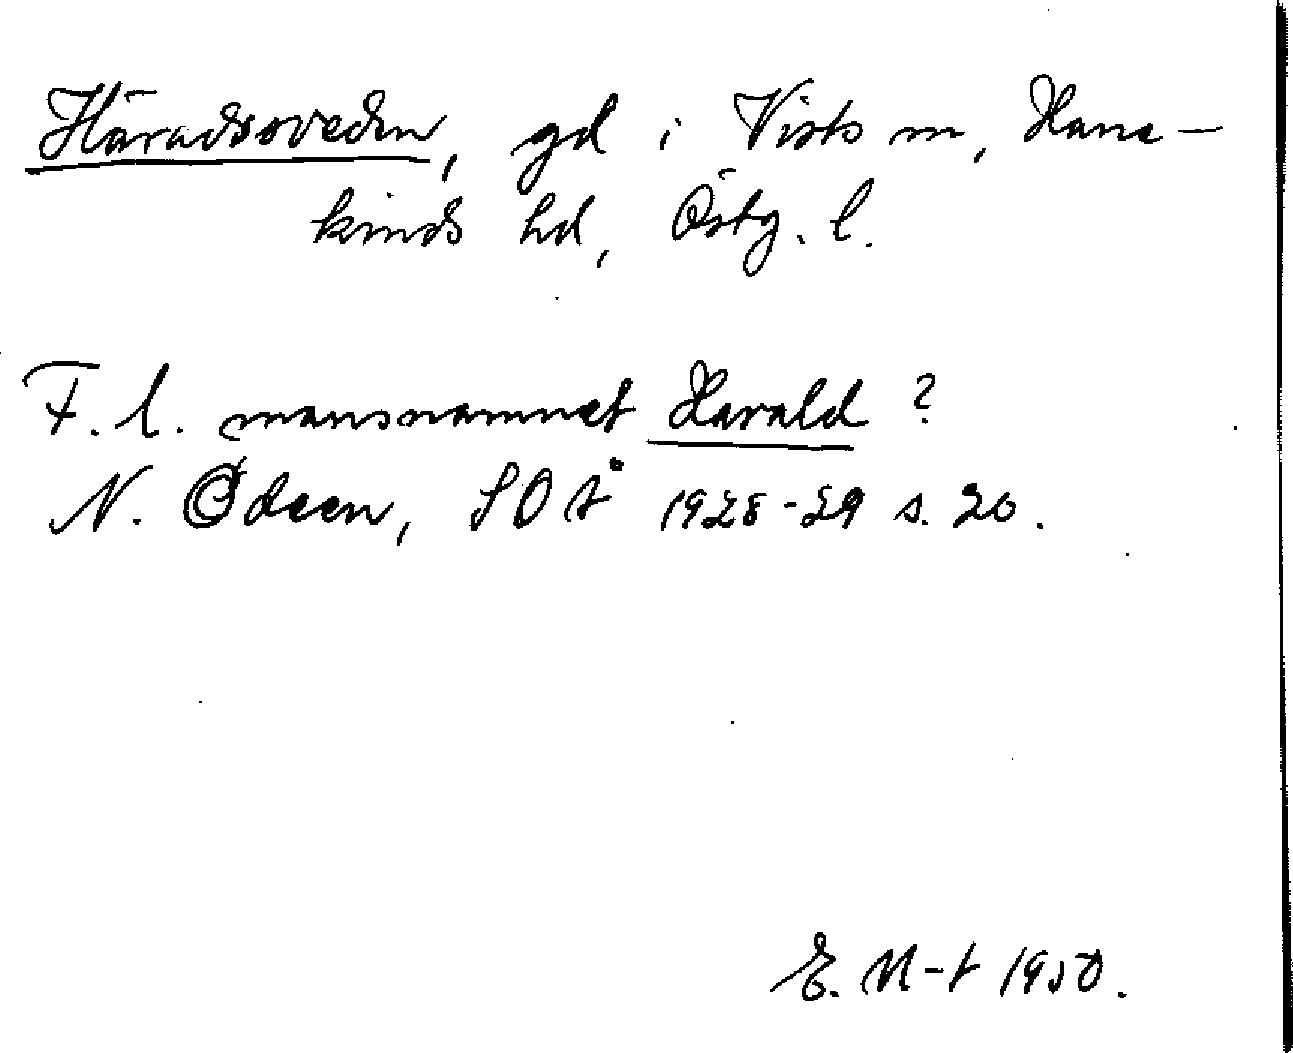 Häradssveden, gd i Vists sn, Hane-
kinds hd, Östg. l.
F. l. mansnamnet Harald?
N. Ödeen, SOÅ 1928-29 s. 20.
E. N-t 1950.